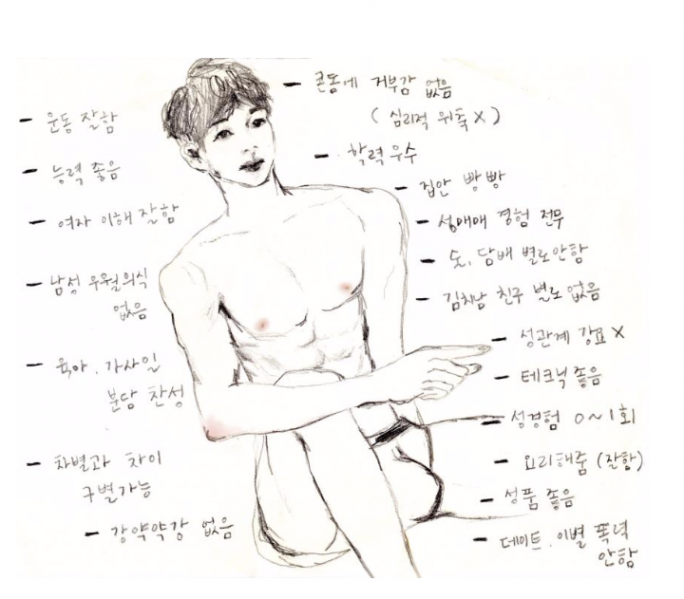 - 운동 잘함
- 능력 좋음
- 여자 이해 잘함
- 남성 우월의식
없음
- 육아. 가사일
분담 찬성
- 차별과 차이
구별가능
- 강약약강 없음
- 콘돔에 거부감 없음
(심리적 위축 X)
- 학력 우수
- 집안 빵빵
- 성매매 경험 전무
- 술, 담배 별로안함
- 김치남 친구 별로 없음
- 성관계 강요 X
- 테크닉 좋음
- 성경험 0~1회
- 요리해줌 (잘함)
- 성품 좋음
- 데이트. 이별 폭력
안함